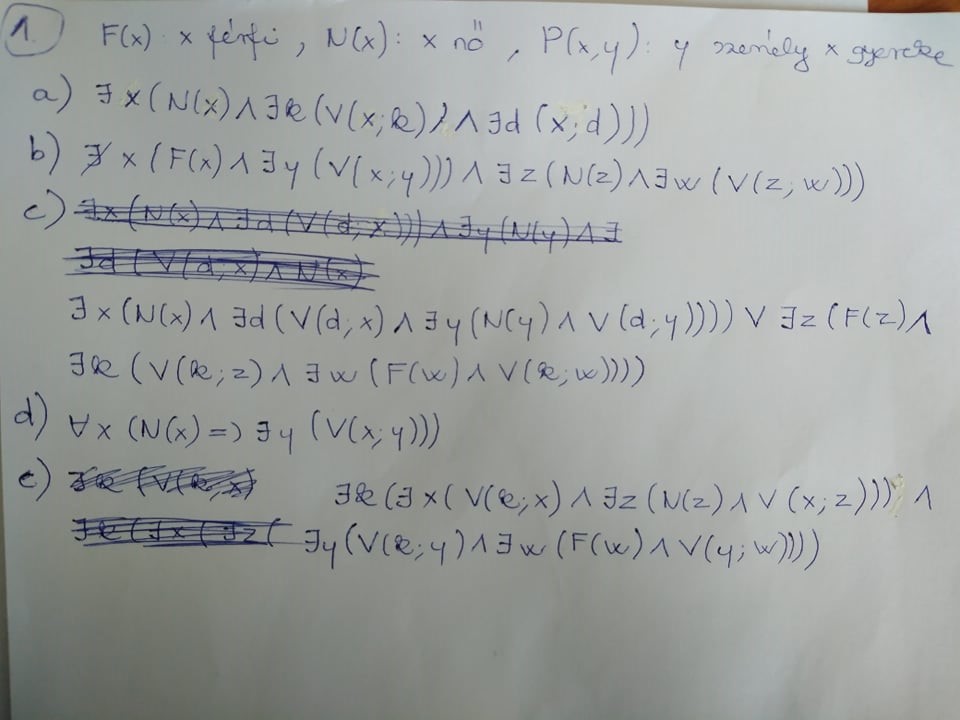 1. F(x): x férfi, N(x): x nő, P(x,y): y személy x gyereke
a) ∃x(N(x)∧∃k(V(x;k))∧∃d(x;d)))
b) ∃x(F(x)∧∃y(V(x;y)))∧∃z(N(z)∧∃w(V(z;w)))
c) ∃x(N(x)∧∃d(V(d;x)))∧∃y(N(y)∧∃
∃d(V(d;x)∧N(x)
∃x(N(x)∧∃d(V(d;x)∧∃y(N(y)∧V(d;y))))∨∃z(F(z)∧
∃k(V(k;z)∧∃w(F(w)∧V(k;w))))
d) ∀x(N(x)=)∃y(V(x;y)))
e) ∃k(V(k;x) ∃k(∃x(V(k;x)∧∃z(N(z)∧V(x;z)))∧
∃k(∃x(∃z( ∃y(V(k;y)∧∃w(F(w)∧V(y;w))))